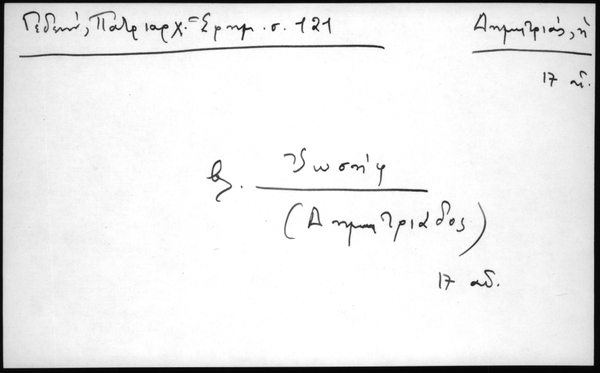 Γεδεών, Πατριαρχ. Ἐφημ. σ. 121
Δημητριάς, ἡ
17 αἰ.
βλ. Ἰωσήφ
(Δημητριάδος)
17 αἰ.